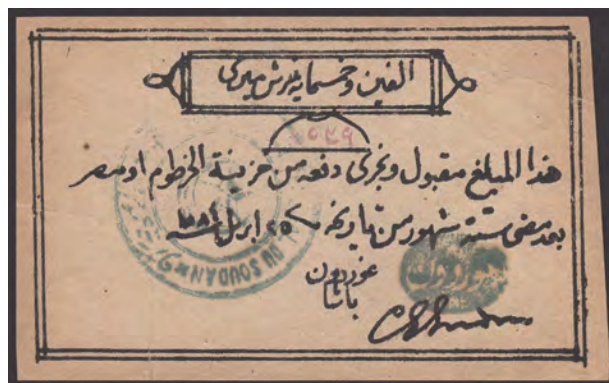 الفين وخمسماية غرش ميرى
٥٤٩
هذا المبلغ مقبول وتجرى دفعه من خزينة الخرطوم او مصر
بعد مضى ستة شهور من تاريخه ٢٥ ابريل سنة ١٨٨٤
غوردون
باشا
DU SOUDAN